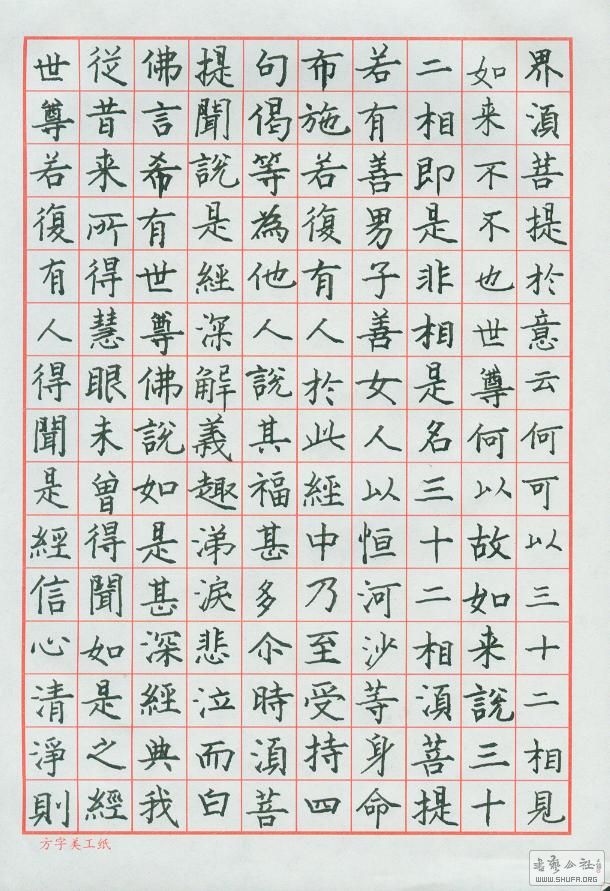 界湏菩提於意云何可以三十二相見
如来不不也世尊何以故如来說三十
二相即是非相是名三十二相湏菩提
若有善男子善女人以恒河沙等身命
布施若復有人於此經中乃至受持四
句偈等為他人說其福甚多尒時湏菩
提聞說是經深解義趣涕淚悲泣而白
佛言希有世尊佛說如是甚深經典我
從昔来所得慧眼未曾得聞如是之經
世尊若復有人得聞是經信心清淨則
方字美工纸
書藝公社
WWW.SHUFA.ORG